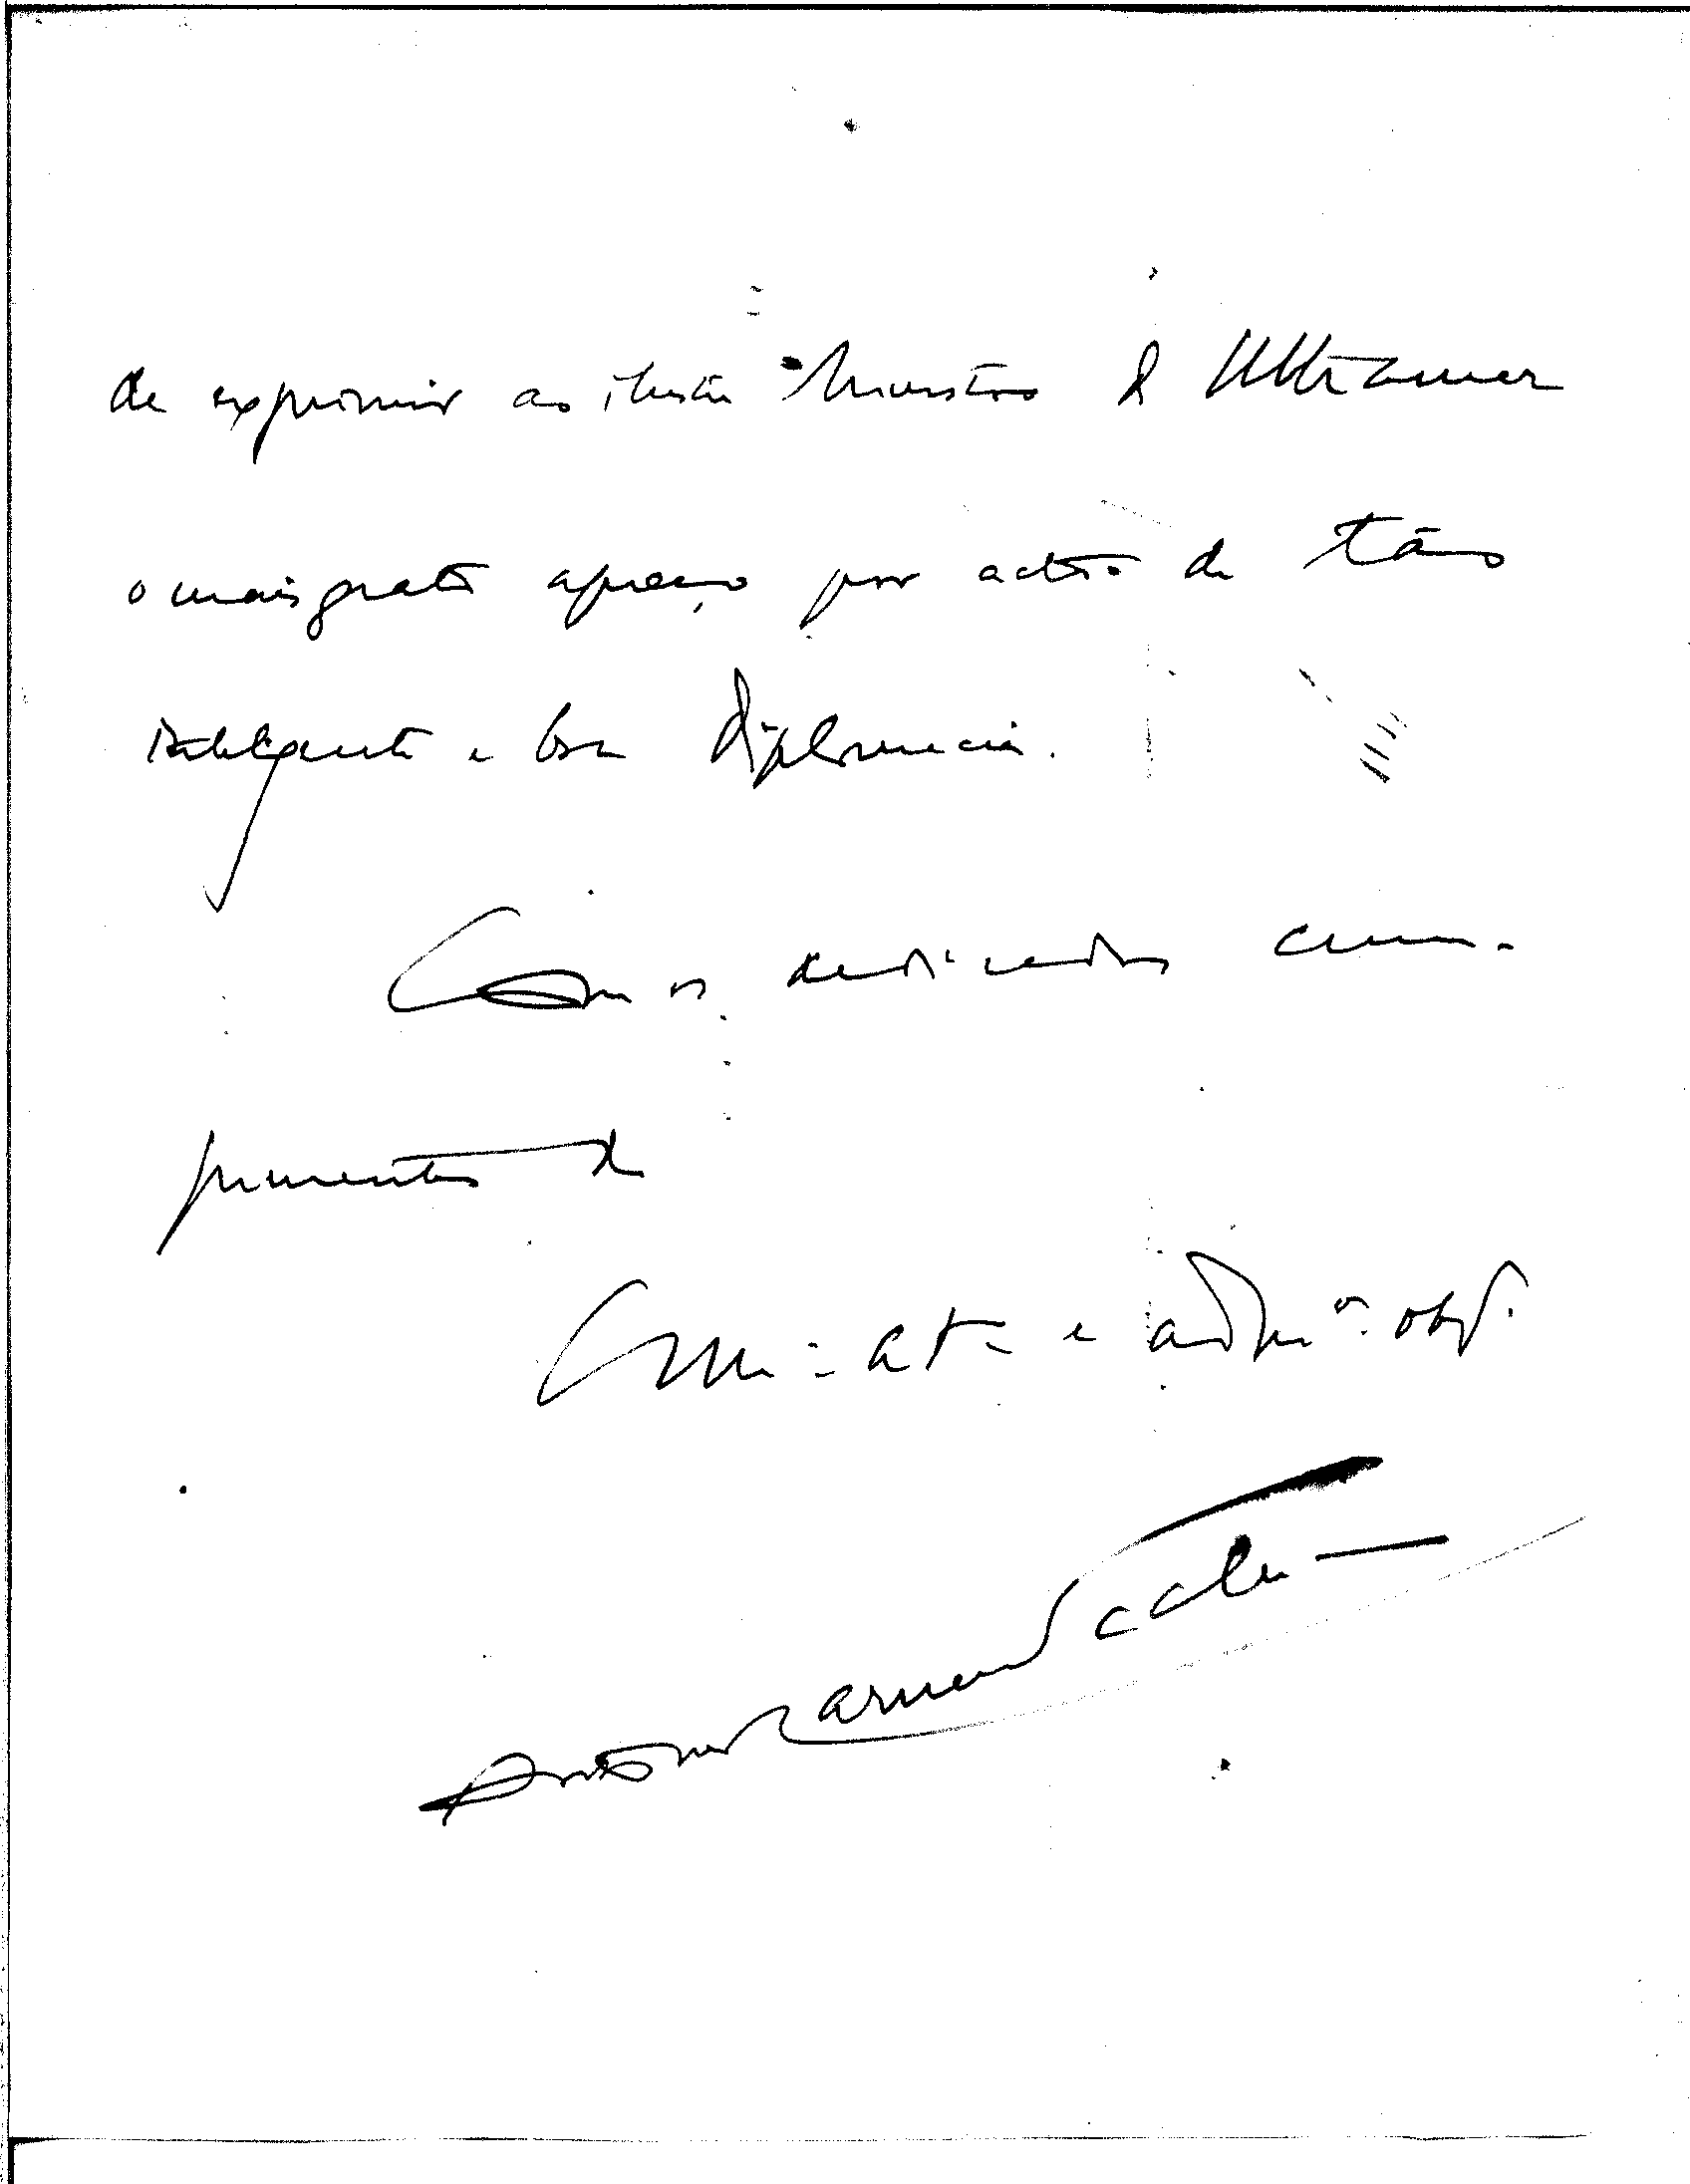 de exprimir ao ilustre Ministro do Ultramar
o mais grato apreço por acto de tão
inteligente e boa diplomacia.
Com os dedicados cum-
primentos de
at.º e adm.ºr obg.